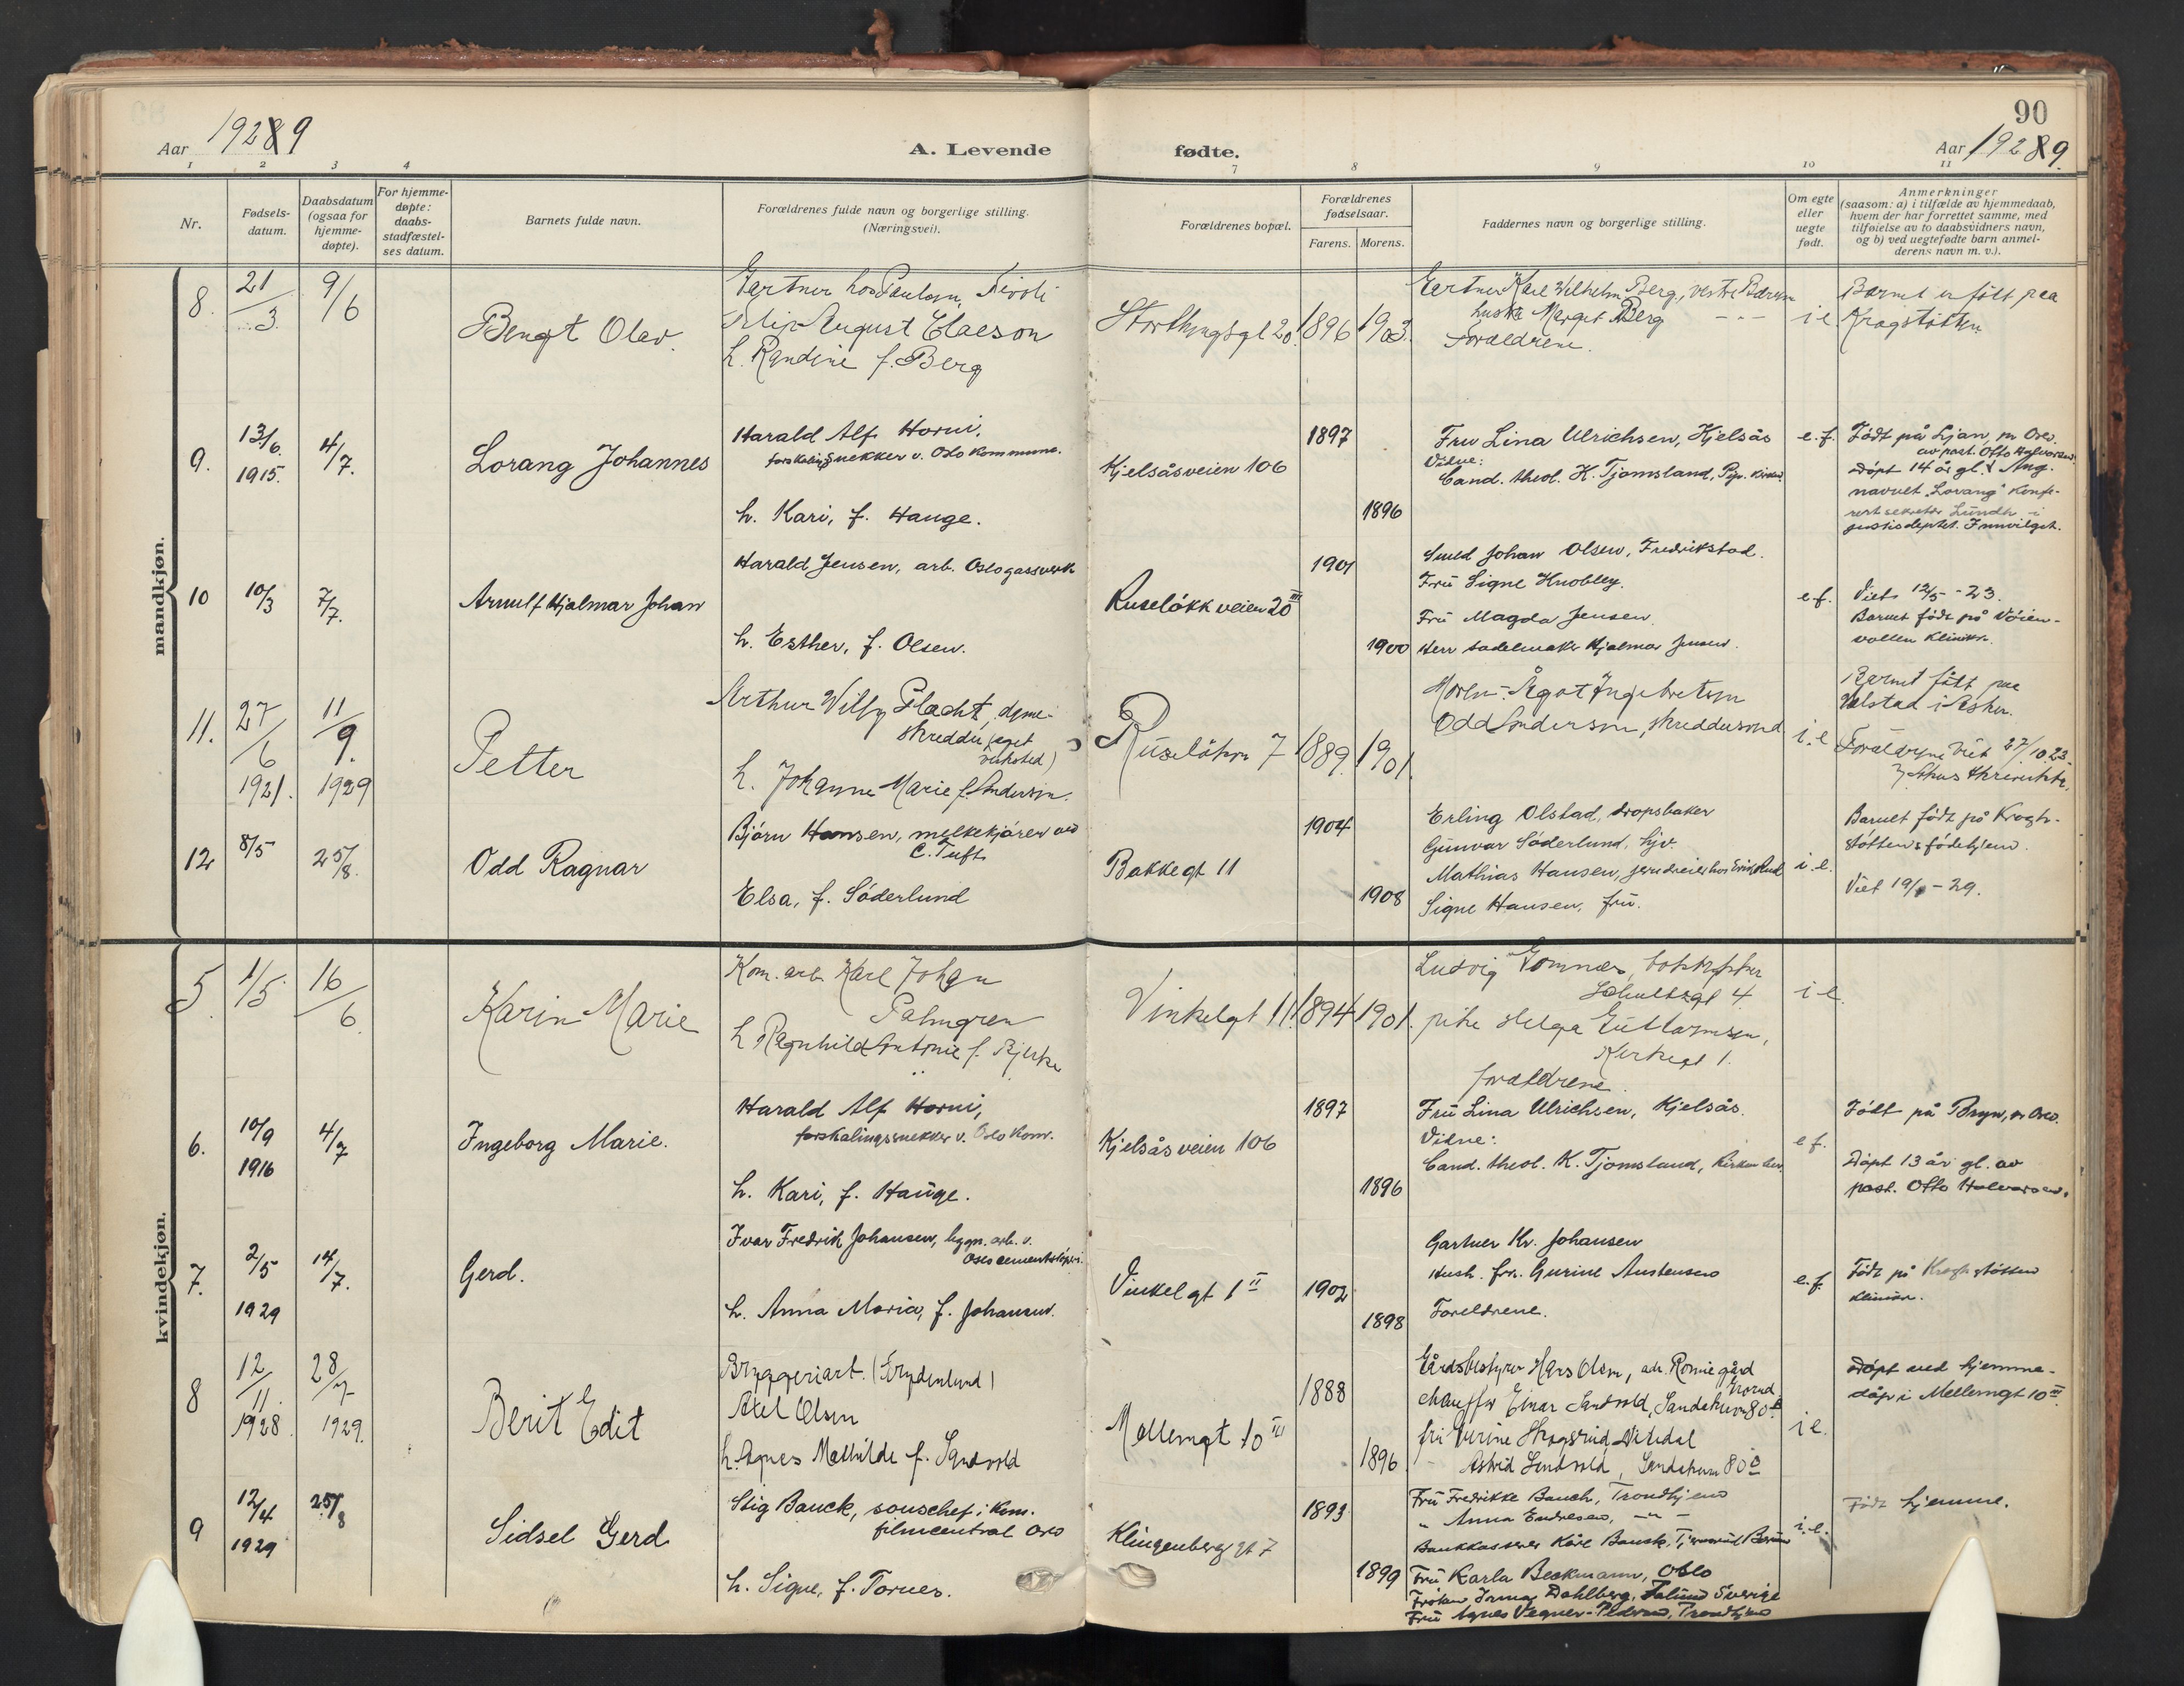 90
Aar 1928 9
A. Levende
fødte.
Aar 1928 9.
1 2 3 4 7 8 9 10 11
Nr.
Fødsels-
datum.
Daabsdatum
(ogsaa for
hjemme-
døpte).
For hjemme-
døpte:
daabs-
stadfæstel-
ses datum.
Barnets fulde navn.
Forældrenes fulde navn og borgerlige stilling.
(Næringsvei).
Forældrenes bopæl.
Forældrenes
fødselsaar.
Farens. Morens.
Faddernes navn og borgerlige stilling.
Om egte
eller
uegte
født.
Anmerkninger
(saasom: a) i tilfælde av hjemmedaab,
hvem der har forrettet samme, med
tilføielse av to daabsvidners navn,
og b) ved uegtefødte barn anmel-
derens navn m. v.).
mandkjøn.
8. 21/3 9/6
Bengt Olav.
Gartner hos Paulsen, Tivoli
Filip August Claeson
h. Randine f. Berg
Storthingsgt 20. 1896 1903.
Gartner Karl Wilhelm Berg, Vestre Bærum
Margit Berg — " —
Forældrene.
i e
Barnet er født paa
Krogstøtten
9. 13/6 1915. 4/7.
Lorang Johannes
Harald Alf Horni,
forskalingsnekker v. Oslo kommune.
h. Kari, f. Hauge.
Kjelsåsveien 106
1897
1896
Fru Lina Ulrichsen, Kjelsås
Vidne:
Cand. theol. K. Tjomsland,
e.f.
Født på Ljan, pr Oslo.
av past. Otto Halvorsen.
Døpt 14 år gl. Ang.
navnet "Lorang" konfe-
rert sekretær Lundh i
justisdeptet. Innvilget.
10 10/3 7/7.
Arnulf Hjalmar Johan
Harald Jensen, arb. Oslo gassverk
h. Esther, f. Olsen.
Ruseløkkveien 20 III
1901
1900
Smed Johan Olsen, Fredrikstad.
Fru Signe Knobley.
Fru Magda Jensen.
Herr sadelmaker Hjalmar Jensen.
e.f.
Viet 12/5 - 23.
Barnet født på Vøien-
vollen klinikk.
11. 27/6 1921. 11/9. 1929
Petter
Arthur Willy Placht, dame-
skredder (eget
verksted)
h. Johanne Marie f. Andersen.
Ruseløkvn 7 1889. 1901.
Moren - Ågot Ingebretsen
Odd Andersen, skreddersvend
i. e
Barnet født paa
Valstad i Asker.
Forældrene viet 27/10 23
12 8/5 25/8.
Odd Ragnar
Bjørn Hansen, melkekjører ved
C. Tuft
Elsa, f. Söderlund
Bakkegt 11
1904
1908
Erling Olstad, dropsbaker
Gunvor Söderlund, hjv.
Mathias Hansen, jerndreier hos Erik Rud
Signe Hansen, fru.
i. e.
Barnet født på Krogh-
støttens fødehjem.
kvindekjøn.
5. 1/5. 16/6
Karin Marie
Kom. arb. Karl Johan
Palmgren
h Ragnhild Antonie f. Bjerke
Vinkelgt 11. 1894 1901.
Ludvig Gomnæs,
Schultzgt 4
pike Helga Guttormsen,
Kirkegt 1.
forældrene.
i e.
6. 10/9 1916 4/7
Ingeborg Marie.
Harald Alf Horni,
forskalingssnekker v. Oslo kom.
h. Kari, f. Hauge.
Kjelsåsveien 106
1897
1896
Fru Lina Ulrichsen, Kjelsås.
Vidne:
Cand. theol. K. Tjomsland,
e f.
Født på Bryn, pr Oslo.
Døpt 13 år gl. av
past. Otto Halvorsen.
7. 2/5 1929 14/7.
Gerd.
Ivar Fredrik Johansen, bygn. arb. v.
Oslo cementstøperi.
h. Anna Maria, f. Johansen.
Vinkelgt 1 II
1902
1898
Gartner Kr. Johansen
Hush. frk. Gurine Austensen
Foreldrene.
e.f.
Født på Kroghstøtten
klinikk.
8 12/11 1928. 28/7 1929.
Berit Edit
Bryggeriarb. (Frydenlund)
Axel Olsen
h. Agnes Mathilde f. Sandvold
Mellemgt 10 III
1888
1896
Gårdsbestyrer Hans Olsen, adr. Romie gård
Grorud
chauffør Einar Sandvold, Sandakervn 80 B
fru Verine Skogsrud, Nitedal
Astrid Sandvold, Sandakervn 80 B
i e.
Døpt ved hjemme-
dåp i Mellemgt 10 III.
9 12/4 1929 25/8
Sidsel Gerd
Stig Bauck, souschef i kom.
filmcentral Oslo
h. Signe, f. Tornes.
Klingenberggt 7
1893
1899
Fru Fredrikke Bauck, Trondhjem
" Anna Endresen, — " —
Bankkasserer Kåre Bauck,
Fru Karla Beckmann, Oslo
Frøken Irma Dahlberg, Falun Sverige
Fru Agnes Vegner-Pedersen, Trondhjem
i. e.
Født hjemme.